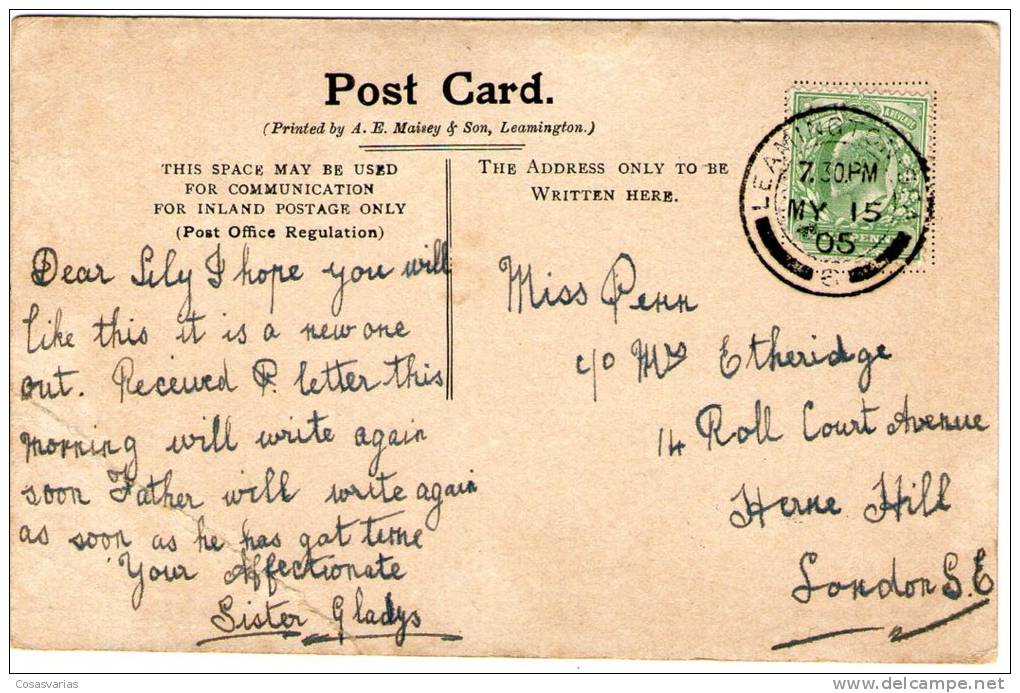 Post Card.
(Printed by A. E. Maisey & Son, Leamington.)
THIS SPACE MAY BE USED
FOR COMMUNICATION
FOR INLAND POSTAGE ONLY
(Post Office Regulation)
Dear Lily I hope you will
like this it is a new one
out. Received P. letter this
morning will write again
soon Father will write again
as soon as he has got time
Your Affectionate
Sister Gladys
THE ADDRESS ONLY TO BE
WRITTEN HERE.
Miss Penn
c/o Mrs Etheridge
14 Roll Court Avenue
Herne Hill
London S.E
LEAMINGTON SPA
7.30.PM
MY 15
05
& REVENUE
PENNY
Cosasvarias
www.delcampe.net